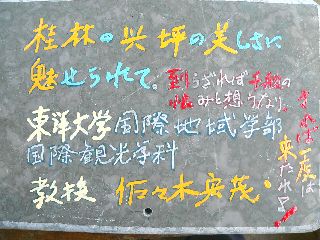 桂林の兴坪の美しさに
魅せられて。
到らざれば千般の
恨みと想うなり。
されば一度は
来たれよ!
東洋大学国際地域学部
国際観光学科
教授 佐々木宏茂